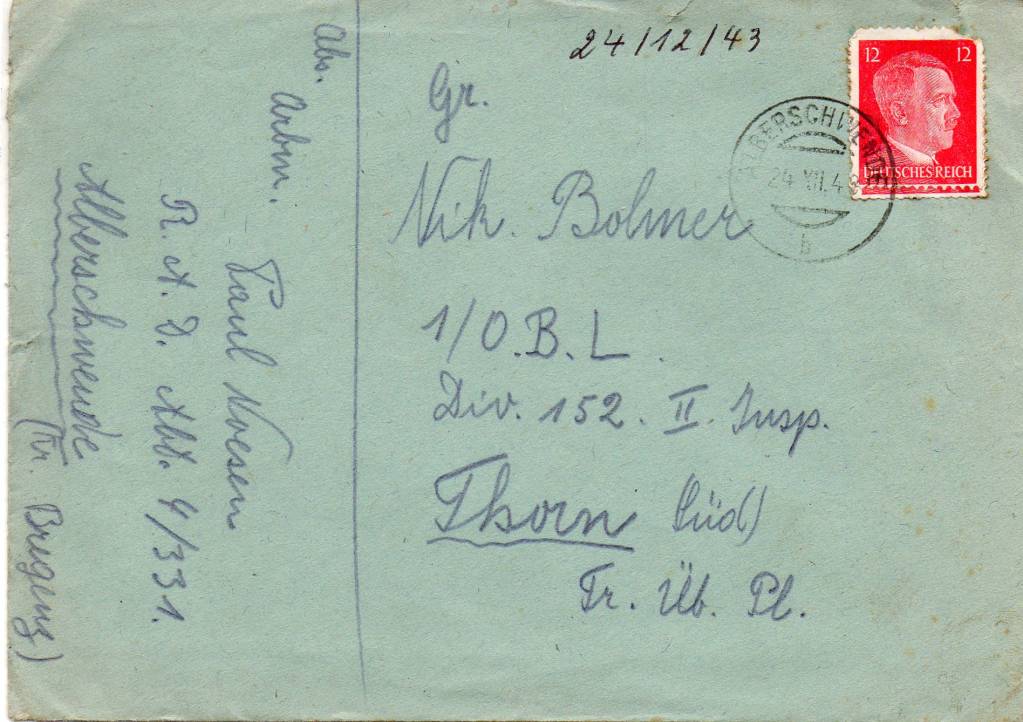 24/12/43
12 12
DEUTSCHES REICH
ALBERSCHWENDE
24.XII.43
b
Gr.
Nik. Bolmer
1/O.B.L.
Div. 152. II. Insp.
Thorn (Süd)
Tr. Üb. Pl.
Abs.
Arbm.
Paul Noesen
R. A. D. Abt. 4/331.
Alberschwende
(Kr. Bregenz)